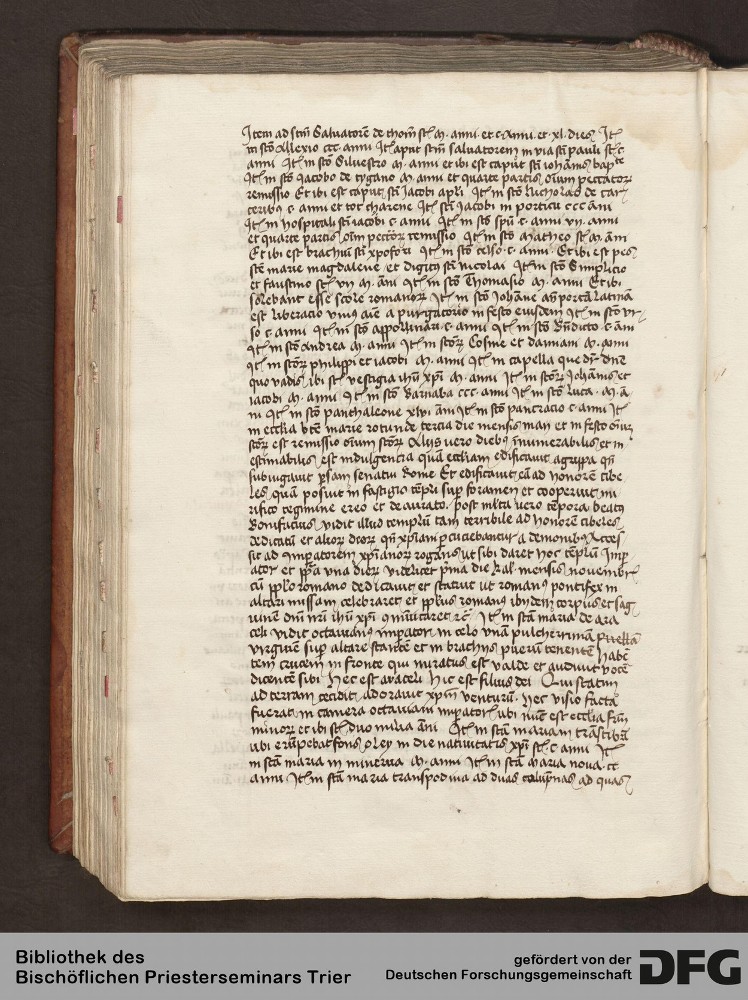 Item ad scm Salvatorē de thom st M. anni et c anni et xl dies It
in scō Allexio ccc anni It aput scm salvatorem in via sci pauli st c
anni It in scō Silvestro M. anni et ibi est caput sci iohānis bapte
It in scō Jacobo de tygano M. anni et quarte partis oīum peccator
remissio Et ibi est caput sci Jacobi apli It in scō Nicholao de car
ceribus c anni et tot charene It sci Jacobi in porticu ccc ani
It in hospitali sci iacobi c anni It in scō spū c anni vii anni
et quarte partis oīm peccor remissio It in scō Matheo st M. am
Et ibi est brachiū sci xpofori It in scō celso c anni Et ibi est pes
scē marie magdalene et digit sci nicolai It in scō Simplicio
et faustino st vii M. ani It in scō Thomasio M. anni Et ibi
solebant esse scole romanor It in scō Johāne an portā latinā
est liberacio unius aīe a purgatorio in festo eiusdem It in scō ur
so c anni It in scō appollinari c anni It in scō Bndicto c ani
It in scō andrea M. anni It in scor Cosme et damiani M. anni
It in scor philippi et iacobi M. anni It in capella que dr dnē
quo vadis ibi st vestigia ihu xpi M. anni It in scor Johānis et
iacobi M. anni It in scō Barnaba ccc anni It in scō luca M. a
ni It in scō panthaleone xlvi am It in scō pancracio c anni It
in ecclia bte marie rotunde tercia die mensis maii et in festo oīum
scor est remissio oīum scor Aliis vero diebus īnumerabilis et in
estimabilis est indulgencia quā eccliam edificavit agrippa qn
subiugavit psam senatui Rome Et edificavit eā ad honorē cibe
les quā posuit in fastigio tēpli sup foramen et cooperuit mi
rifico tegmine ereo et deaurato post mlta vero tēpora beatus
Bonifacius vidit illud templū tam terribile ad honorē ciberes
dedicatū et alior deor qn xpiani pcuciebantur a demonibus Acces
sit ad imperatorem xpianor rogans ut sibi daret hoc tēplū Imp
ator et ppa una dier videlicet pma die kal mensis novembr
cū pplo romano dedicavit et statuit ut romanus pontifex in
altari missam celebraret et pplus romanus ibidem corpus et sag
uinē dni nri ihu xpi cōmitaret rc It in scā maria de ara
celi vidit octavianus impator in celo unā pulcherrimā puellā
virginē sup altare stantē et in brachiis puerū tenentē habē
tem crucem in fronte qui miratus est valde et audivit vocē
dicentē sibi Hec est araceli hic est filius dei Qui statim
ad terram cecidit adoravit xpm venturū hec visio facta
fuerat in camera octaviani imperator ubi nunc est ecclia frum
minor et ibi st duo milia ani It in scā mariam trastibā
ubi erūpebat fons oley in die nativitatis xpi st c anni It
in scā maria in minerva M. anni It in scā Maria nova cc
anni It in scā maria transpodina ad duas colupnas ad quas
Bibliothek des
Bischöflichen Priesterseminars Trier
gefördert von der
Deutschen Forschungsgemeinschaft
DFG